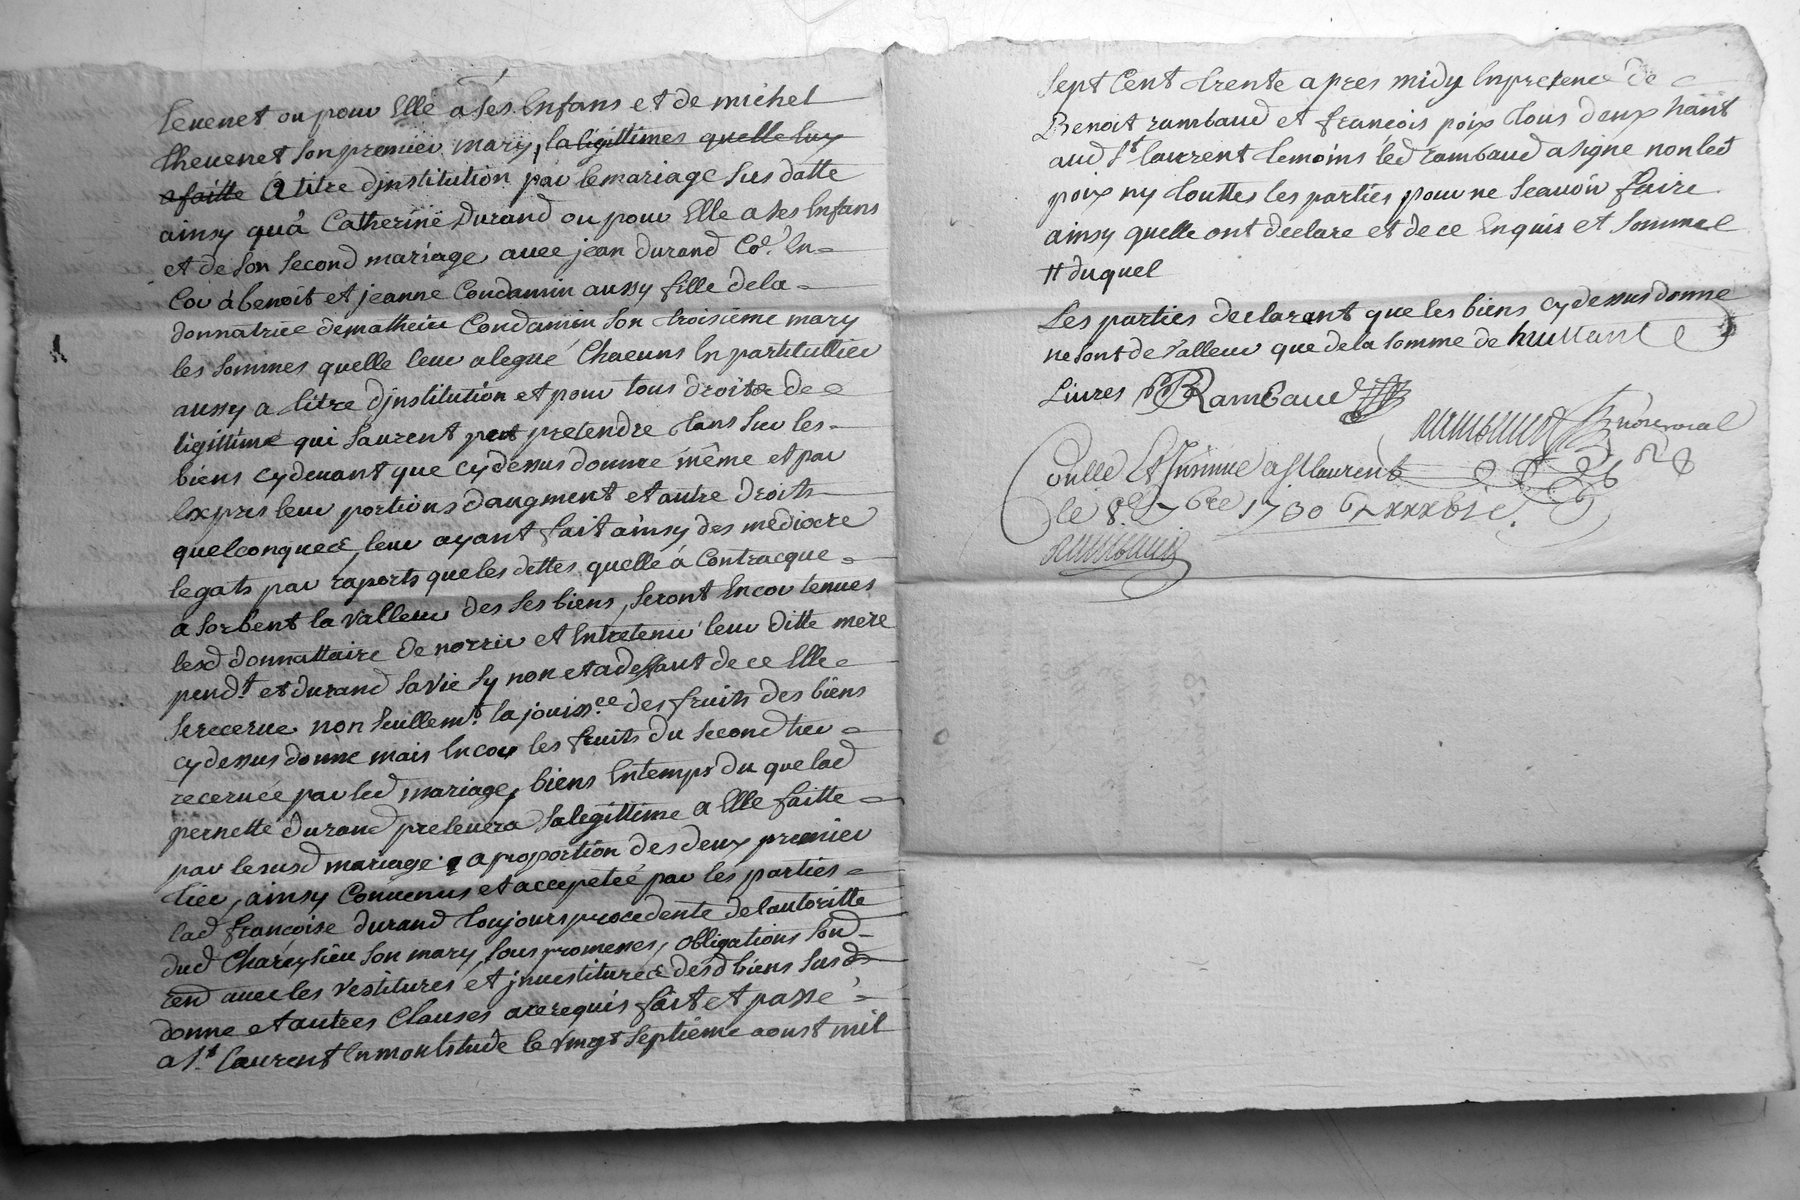 teuenet ou pour Elle a ses Enfans et de michel
theuenet son premier mary, la ligittimes quelle luy
a faitte a titre djnstitution par le mariage sus datte
ainsy qua Catherine Durand ou pour Elle a ses Enfans
et de son second mariage auec jean durand Co.e En=
cor a benoit et jeanne Condamin aussy fille dela=
donnatrice de matheiu Condamin son troisieme mary
les sommes quelle leur a legué Chacuns En partitullier
aussy a titre djnstitution et pour tous droits de
ligittime qui sauroent pretendre tans sur les=
biens cydeuant que cydessus donnee même et par
Expres leur portions daugment et autre droits
quelconquee, leur ayant fait ainsy des mediocre
legats par raports que les dettes quelle à Contracque=
asorbent la valleur des ses biens, seront Encor tenues
lesd donnattaire de norrir et Entretenir leur ditte mere
pend.t et durand sa vie sy non et a deffaut de ce Elle
se recerue non seullem.t la jouiss.ce des fruits des biens
cydessus donne mais Encor les fruits du second tier=
receruée par led mariage, biens Entemps du que lad
pernette durand preleuera sa legittime a Elle faitte=
par le susd mariage a proportion des deux premier
tier, ainsy Conuenus et accepetée par les parties=
lad francoise durand toujours procedente de lautoritte
dud Chareysieu son mary, sous promesses, obligations sond-
rend auec les vestitures et jnuestituree desd biens susd
donne et autres Clauses a ce requis fait et passé=
a S.t Laurent En moulstude le vingt septieme aoust mil
sept Cent trente apres midy En presence de
Benoit rambaud et francois poix tous deux hant
aud S.t laurent temoins led rambaud a signe non led
poix ny touttes les parties pour ne scauoir faire
ainsy quelle ont declare et de ce Enquis et sommee
# duquel
Les parties declarant que les biens cydessus donne
ne sont de valleur que de la somme de huittant
Liures BRambaud
rambaud notroial
Conlle Et Jnsinue a St laurent
le 8e 7bre 1730
rambaud